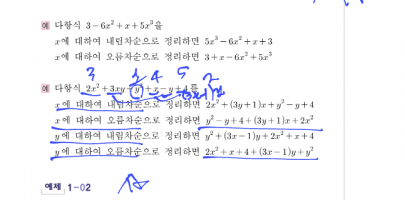 예 다항식 3−6x²+x+5x³을
x에 대하여 내림차순으로 정리하면 5x³−6x²+x+3
x에 대하여 오름차순으로 정리하면 3+x−6x²+5x³
3 1 4 5 2
예 다항식 2x²+3xy+y²+x−y+4를
x에 대하여 내림차순으로 정리하면 2x²+(3y+1)x+y²−y+4
x에 대하여 오름차순으로 정리하면 y²−y+4+(3y+1)x+2x²
y에 대하여 내림차순으로 정리하면 y²+(3x−1)y+2x²+x+4
y에 대하여 오름차순으로 정리하면 2x²+x+4+(3x−1)y+y²
예제 1-02